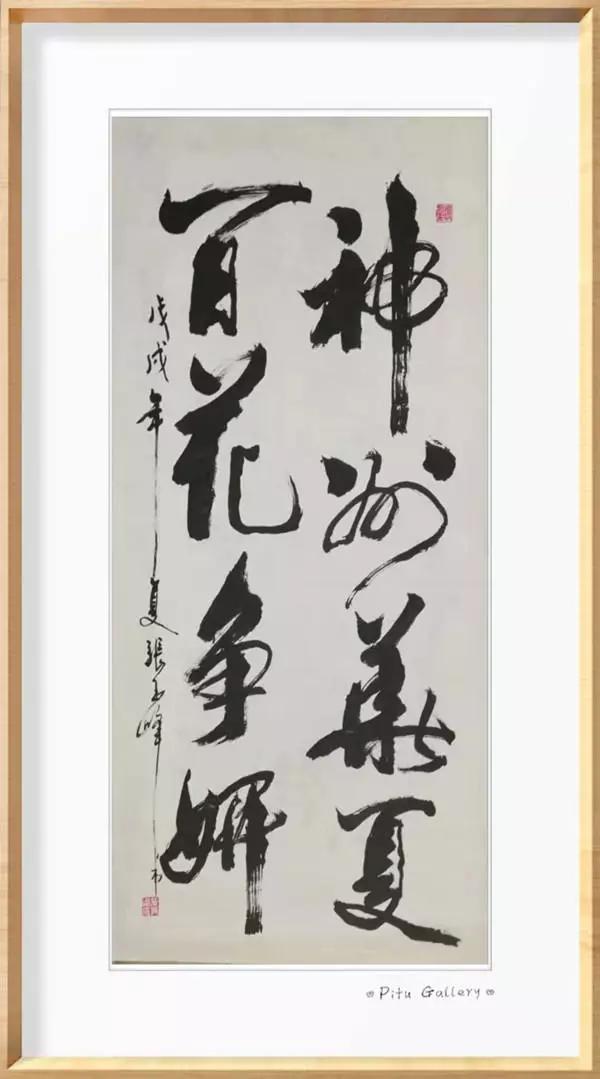 神州華夏
百花争妍
戊戌年夏張玉峰
Pitu Gallery